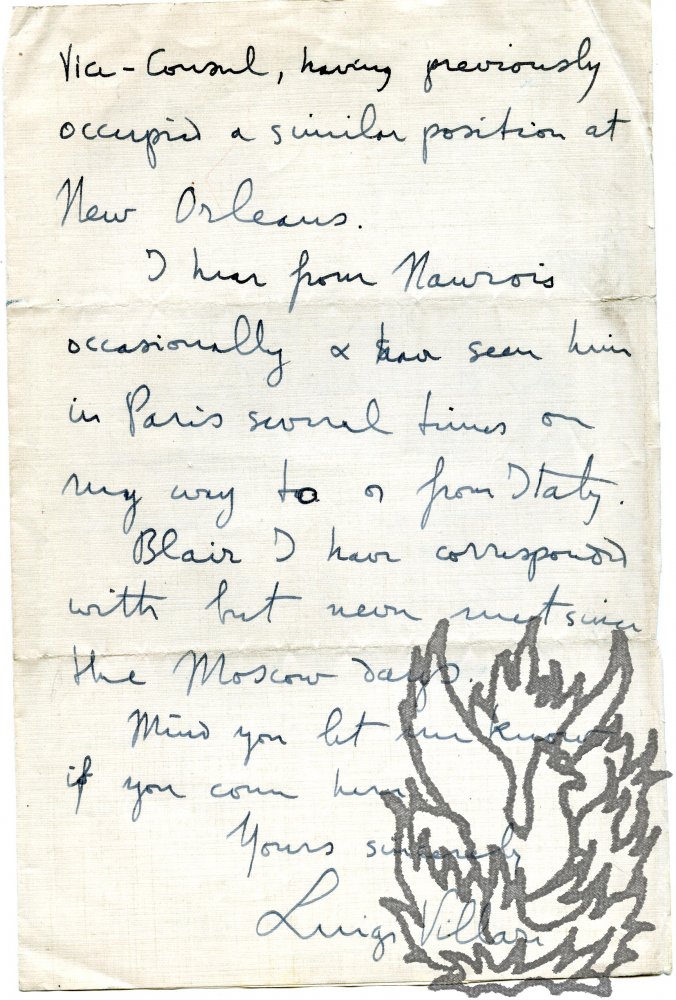 Vice-Consul, having previously
occupied a similar position at
New Orleans.
I hear from Naurois
occasionally & have seen him
in Paris several times on
my way to or from Italy.
Blair I have corresponded
with but never met since
the Moscow days.
Mind you let me know
if you come here
Yours sincerely
Luigi Villari